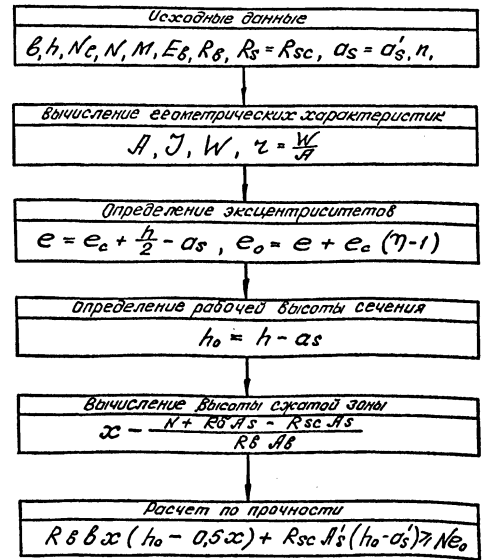 Исходные данные
в, h, Nе, N, M, Eв, Rв, Rs = Rsc, as = a's, n,
Вычисление геометрических характеристик
A, J, W, r = W/A
Определение эксцентриситетов
e = ec + h/2 - as, eo = e + ec (η-1)
Определение рабочей высоты сечения
ho = h - as
Вычисление высоты сжатой зоны
x - N + Rб As - Rsc As / Rв Aв
Расчет по прочности
Rв в x (ho - 0,5x) + Rsc A's (ho - a's) ⩾ Neo